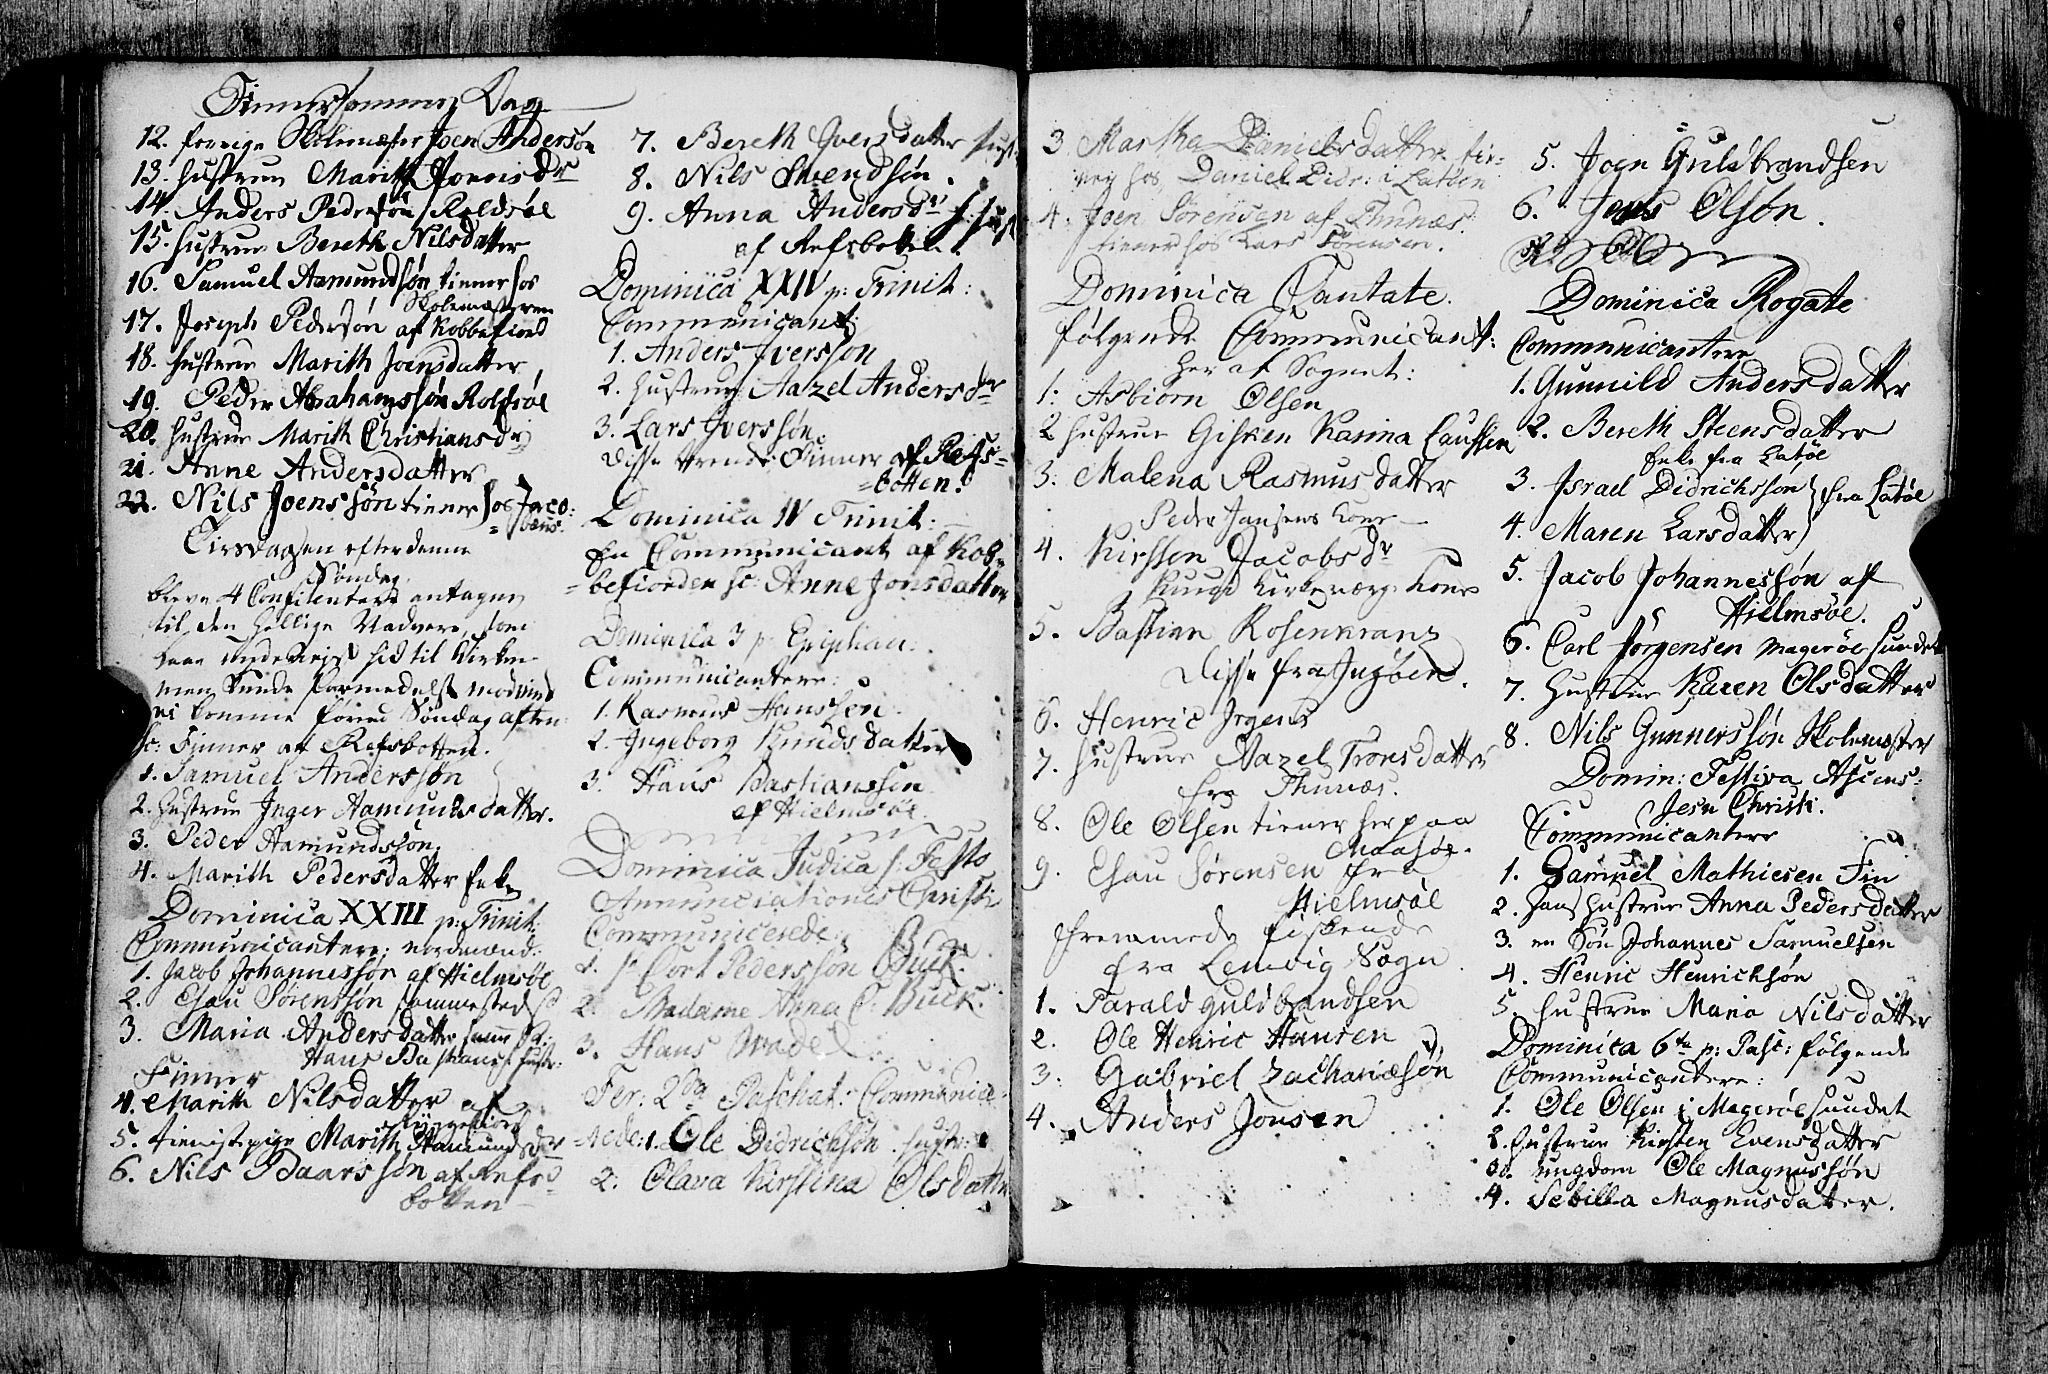 Finnersommer Dag
12. forrige Skolemæster Joen Andersøn
13. hustrue Marith Joensdr
14. Anders Pedersøn / Rolfsøe
15. hustrue Bereth Nilsdatter
16. Samuel Aamundsøn tiener hos
Skolemesteren
17. Joseph Pedersøn af Kobbefiord
18. hustrue Marith Joensdatter
19. Peder Abrahamssøn Rolfsøe
20. hustrue Marith Christiansdr
21. Anne Andersdatter
22. Nils Joenssøn tiener hos Jaco:
= bæus.
Tirsdagen efter denne
Søndag
bleve 4 Confitentere antagne
til den hellige Nadvere, som
vare underveist hid til Kirken
men kunde formedelst modvind
ei komme førend Søndag aften
sc: Finner af Refsbotten.
1. Samuel Anderssøn
2. hustrue Inger Aamundsdatter.
3. Peder Aamundssøn
4. Marith Pedersdatter Enke
Dominica XXIII p: Trinit:
Communicantere: nordmænd:
1. Jacob Johannessøn af Hielmsøe
2. Esau Sørenssøn sammesteds
3. Maria Andersdatter
Hans Bastians: hustr:
Finner
4. Marith Nilsdatter af
5. tienistpige Marith Aamundsdr
6. Nils Baarssøn af Refs=
botten
7. Bereth Iversdatter hust:
8. Nils Svendsøn.
9. Anna Andersdr hust
af Refsbotten.
Dominica XXIV p: Trinit:
Communicant:
1. Anders Iverssøn
2. hustrue Aazel Andersdr
3. Lars Iverssøn
disse Finner af Refs=
=botten.
Dominica IV Trinit:
En Communicant af Kob=
=befiorden sc: Anne Jonsdatter
Dominica 3 p: Epiphan:
Communicantere:
1. Rasmus Hanssøn
2. Ingeborg Knudsdatter
3. Hans Bastianssen
af Hielmsøe.
Dominica Judica s: Festo
Annunciationis Christi
Communicerede:
1. Hr Cort Pederssøn Buck.
2. Madame Anna C: Buck.
3. Hans
Fer: 2da Paschat: Communice=
=rede: 1. Ole Didrichsøn hustr:
2. Olava Kirstina Olsdatter
3 Martha Danielsdatter
hos Daniel Didr: i Latøen
4. Joen Sørensen af Thunæs.
tiener hos Lars Sørensen.
Dominica Cantate.
følgende Communicant:
her af Sognet:
1: Asbiørn Olsen
2 hustrue Gisken Karina Caussen
3: Malena Rasmusdatter
Peder Jansens kone
4. Kirsten Jacobsdr
Knud Kirkeværge kone
5. Bastian Rosenkranz
disse fra Ingøen.
6. Henric Irgens
7. hustrue Aazel Tronsdatter
fra Thunæs.
8. Ole Olsen tiener her paa
Maasøe.
9. Esau Sørensen fra
Hielmsøe
fremmede fiskende
fra Lenvig Sogn
1. Tarald Guldbrandsen
2. Ole Henric Hansen
3: Gabriel Zachariæsøn
4. Anders Jonsen
5. Joen Guldbrandsen
6. Jens Olsøn.
Dominica Rogate
Communicantere
1. Gunnild Andersdatter
2. Bereth Steensdatter
Enke fra Latøe
3. Israel Didrichsson } fra Latøe
4. Maren Larsdatter }
5. Jacob Johannessøn af
Hielmsøe.
6. Carl Jørgensen Magerøesundet
7. hustrue Karen Olsdatter
8. Nils Gunnerssøn Skolemæster
Domin: Festiva Ascens:
Jesu Christi.
Communicantere
1. Samuel Mathiesen Fin
2. hans hustrue Anna Pedersdatter
3. en Søn Johannes Samuelsen
4. Henric Henrichsøn
5. hustrue Maria Nilsdatter
Dominica 6ta p: Pasc: følgende
Communicantere:
1. Ole Olsen i Magerøesundet
2. hustrue Kirsten Evensdatter
3. ungdom Ole Magnussøn
4. Sebilla Magnusdatter.